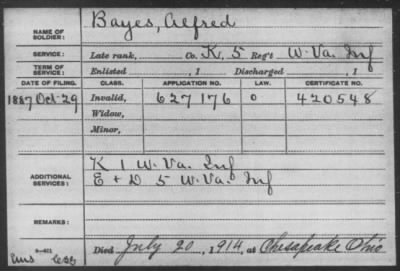 NAME OF SOLDIER: Bayes, Alfred
SERVICE: Late rank, Co. K, 5 Reg't W. Va. Inf
TERM OF SERVICE: Enlisted , 1 Discharged , 1
DATE OF FILING. CLASS. APPLICATION NO. LAW. CERTIFICATE NO.
1887 Oct-29 Invalid, 627176 0 420548
Widow,
Minor,
ADDITIONAL SERVICES: K 1 W. Va. Inf
E + D 5 W. Va. Inf
REMARKS:
Died July 20, 1914, at Chesapeake Ohio